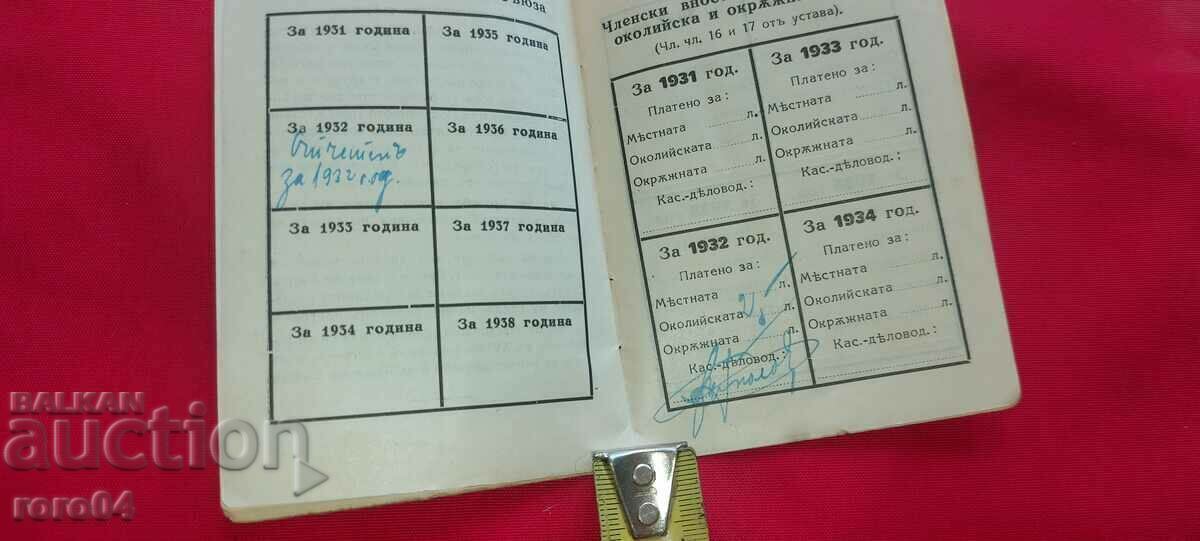 За 1931 година
За 1935 година
За 1932 година
Отчетенъ
за 1932 год.
За 1936 година
За 1933 година
За 1937 година
За 1934 година
За 1938 година
Членски
околийска и
(Чл. чл. 16 и 17 отъ устава).
За 1931 год.
Платено за:
Мѣстната л.
Околийската л.
Окрѫжната л.
Кас.-дѣловод.:
За 1933 год.
Платено за:
Мѣстната л.
Околийската л.
Окрѫжната л.
Кас.-дѣловод.:
За 1932 год.
Платено за:
Мѣстната л.
Околийската л.
Окрѫжната л.
Кас.-дѣловод.:
За 1934 год.
Платено за:
Мѣстната л.
Околийската л.
Окрѫжната л.
Кас.-дѣловод.:
BALKAN
auction
roro04